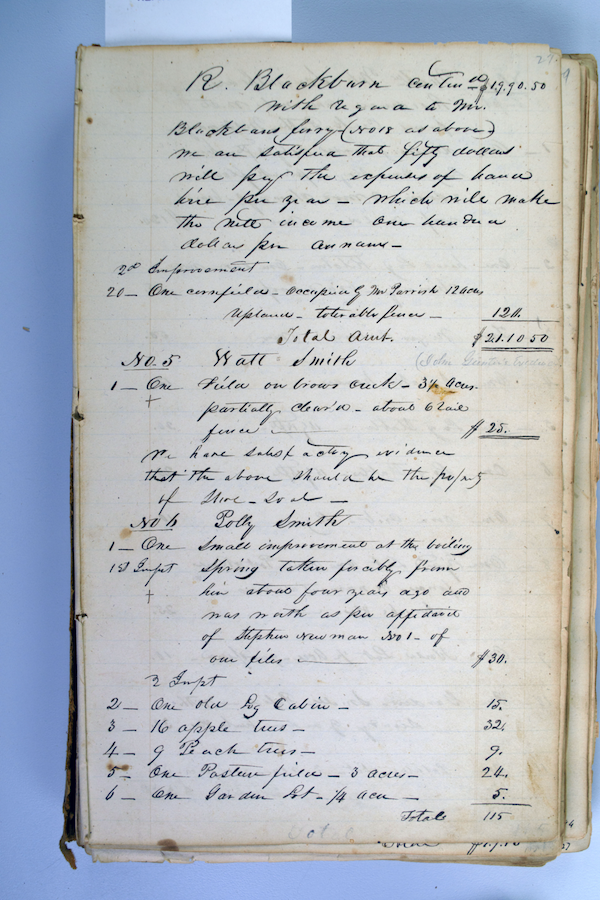 R. Blackburn contind $1990.50
with regard to Mr.
Blackburns ferry (No 18 as above)
we are satisfied that fifty dollars
will pay the expenses of hand
hire per year - which will make
the nett income One hundred
dollar per annum -
2nd Improvement
20 - One cornfield - occupied by Mr Parrish 12 acres
upland - tolerable fence - 120.
Total Amt. $2110 50
No. 5 Watt Smith
1 - One Field on brows creek - 3½ acres
partially clear'd - about 6 rail
fence $25.
We have satisfactory evidence
that the above should be the property
of
No 6 Polly Smith
1 - One small improvement at the boiling
1st Impt spring taken forcibly from
him about four years ago and
was worth as per affidavid
of Stephen Newman No 1 - of
our files $30.
2 Impt
2 - One old log Cabin - 15.
3 - 16 apple trees - 32.
4 - 9 Peach trees - 9.
5 - One Pasture field - 3 acres - 24.
6 - One Garden Lot - ¼ acre - 5.
Total 115